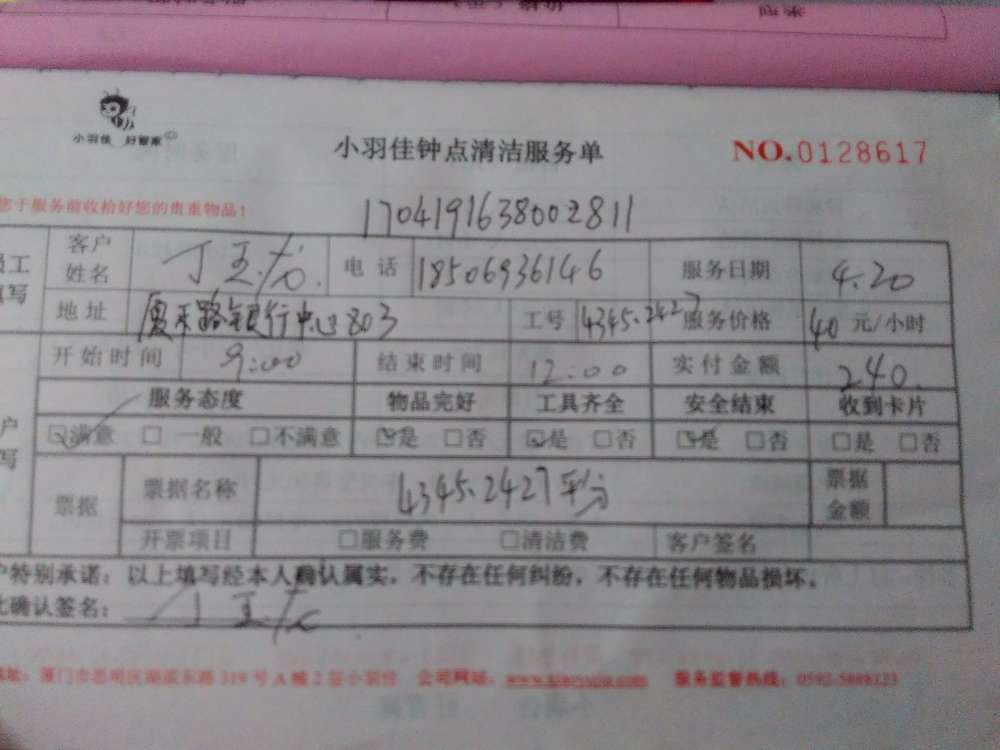 小羽佳 好管家
小羽佳钟点清洁服务单
NO.0128617
您于服务前收拾好您的贵重物品！
1704191638002811
员工
填写
客户
姓名
丁玉龙
电话 18506936146 服务日期 4.20
地址 厦禾路银行中心803 工号 4345.2427 服务价格 40元/小时
开始时间 9:00 结束时间 12:00 实付金额 240.
服务态度 物品完好 工具齐全 安全结束 收到卡片
☑满意 □一般 □不满意 ☑是 □否 ☑是 □否 ☑是 □否 □是 □否
户
写
票据 票据名称 4345.2427平分 票据
金额
开票项目 □服务费 □清洁费 客户签名
户特别承诺：以上填写经本人确认属实，不存在任何纠纷，不存在任何物品损坏。
此确认签名：丁玉龙
地址：厦门市思明区湖滨东路319号A幢2层小羽佳 公司网站： 服务监督热线：0592-5888123